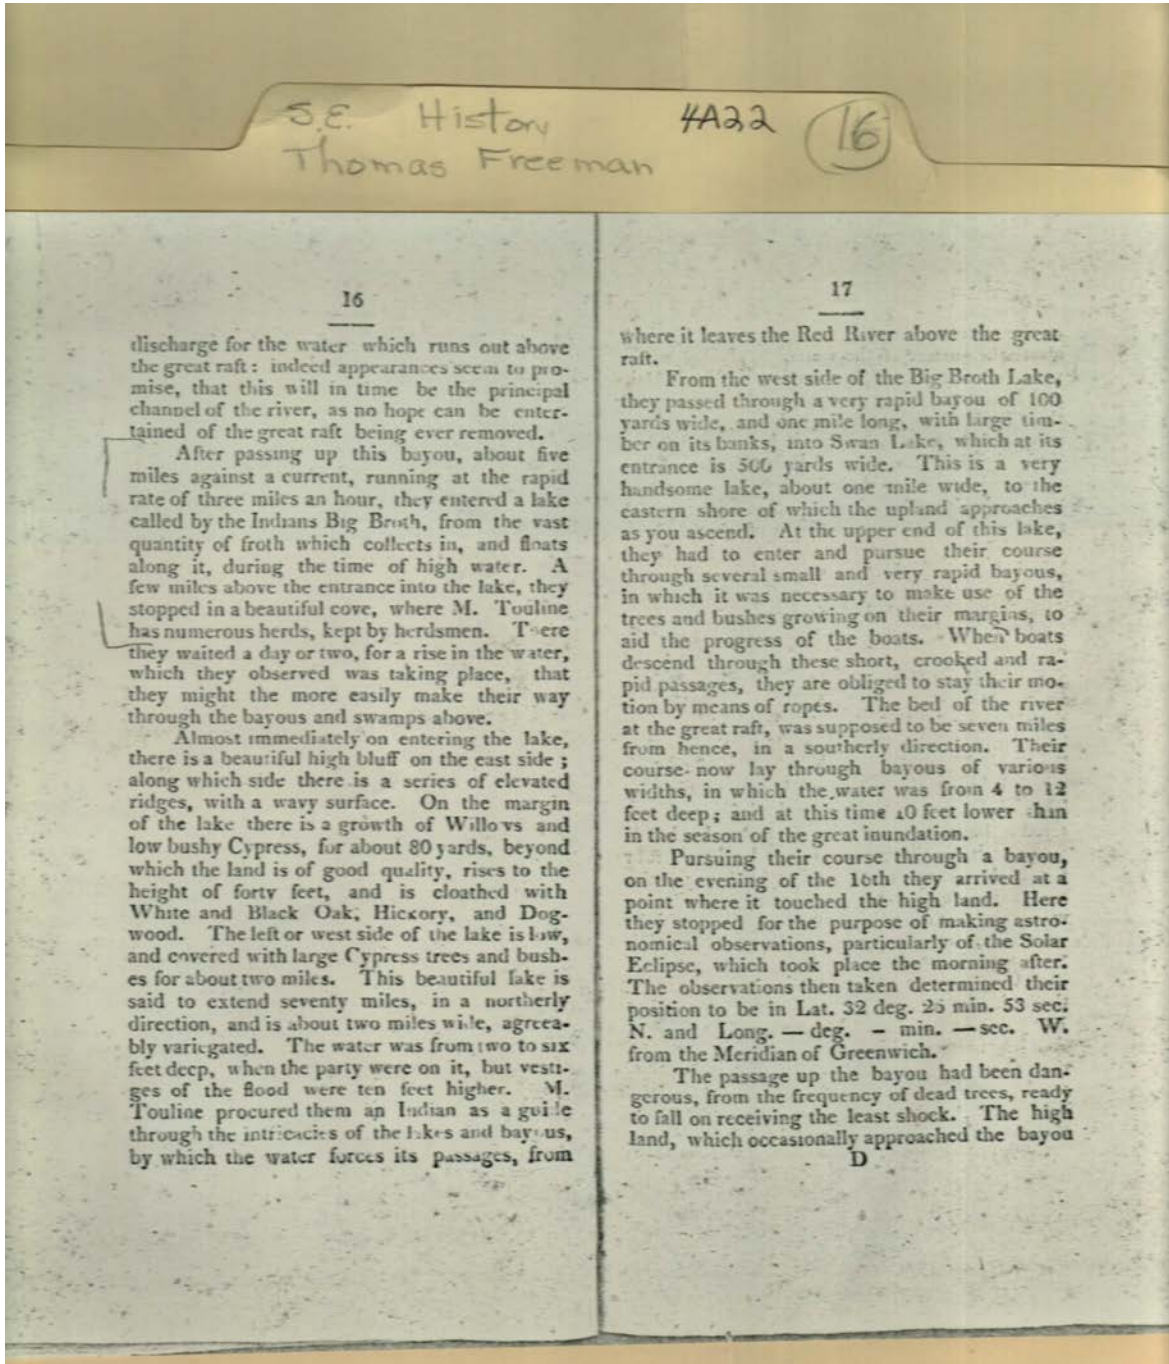 S.E. History 4A22 16
Thomas Freeman
16
discharge for the water which runs out above
the great raft: indeed appearances seem to pro-
mise, that this will in time be the principal
channel of the river, as no hope can be enter-
tained of the great raft being ever removed.
After passing up this bayou, about five
miles against a current, running at the rapid
rate of three miles an hour, they entered a lake
called by the Indians Big Broth, from the vast
quantity of froth which collects in, and floats
along it, during the time of high water. A
few miles above the entrance into the lake, they
stopped in a beautiful cove, where M. Touline
has numerous herds, kept by herdsmen. There
they waited a day or two, for a rise in the water,
which they observed was taking place, that
they might the more easily make their way
through the bayous and swamps above.
Almost immediately on entering the lake,
there is a beautiful high bluff on the east side;
along which side there is a series of elevated
ridges, with a wavy surface. On the margin
of the lake there is a growth of Willows and
low bushy Cypress, for about 80 yards, beyond
which the land is of good quality, rises to the
height of forty feet, and is cloathed with
White and Black Oak, Hickory, and Dog-
wood. The left or west side of the lake is low,
and covered with large Cypress trees and bush-
es for about two miles. This beautiful lake is
said to extend seventy miles, in a northerly
direction, and is about two miles wide, agreea-
bly variegated. The water was from two to six
feet deep, when the party were on it, but vesti-
ges of the flood were ten feet higher. M.
Touline procured them an Indian as a guide
through the intricacies of the lakes and bayous,
by which the water forces its passages, from
17
where it leaves the Red River above the great
raft.
From the west side of the Big Broth Lake,
they passed through a very rapid bayou of 100
yards wide, and one mile long, with large tim-
ber on its banks, into Swan Lake, which at its
entrance is 500 yards wide. This is a very
handsome lake, about one mile wide, to the
eastern shore of which the upland approaches
as you ascend. At the upper end of this lake,
they had to enter and pursue their course
through several small and very rapid bayous,
in which it was necessary to make use of the
trees and bushes growing on their margins, to
aid the progress of the boats. When boats
descend through these short, crooked and ra-
pid passages, they are obliged to stay their mo-
tion by means of ropes. The bed of the river
at the great raft, was supposed to be seven miles
from hence, in a southerly direction. Their
course now lay through bayous of various
widths, in which the water was from 4 to 12
feet deep; and at this time 10 feet lower than
in the season of the great inundation.
Pursuing their course through a bayou,
on the evening of the 16th they arrived at a
point where it touched the high land. Here
they stopped for the purpose of making astro-
nomical observations, particularly of the Solar
Eclipse, which took place the morning after.
The observations then taken determined their
position to be in Lat. 32 deg. 25 min. 53 sec.
N. and Long. — deg. – min. — sec. W.
from the Meridian of Greenwich.
The passage up the bayou had been dan-
gerous, from the frequency of dead trees, ready
to fall on receiving the least shock. The high
land, which occasionally approached the bayou
D